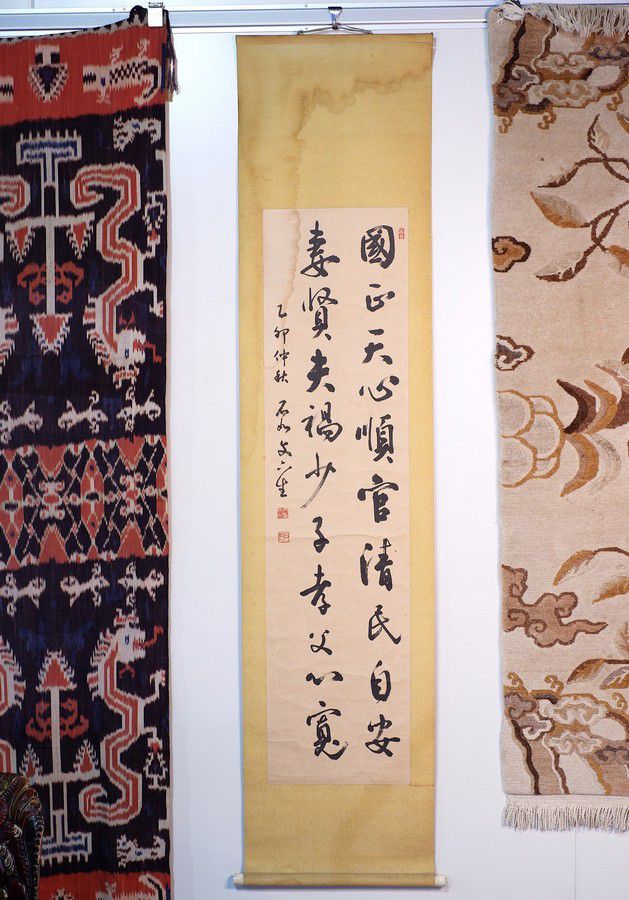 國正天心順官清民自安
妻賢夫禍少子孝父心寬
乙卯仲秋